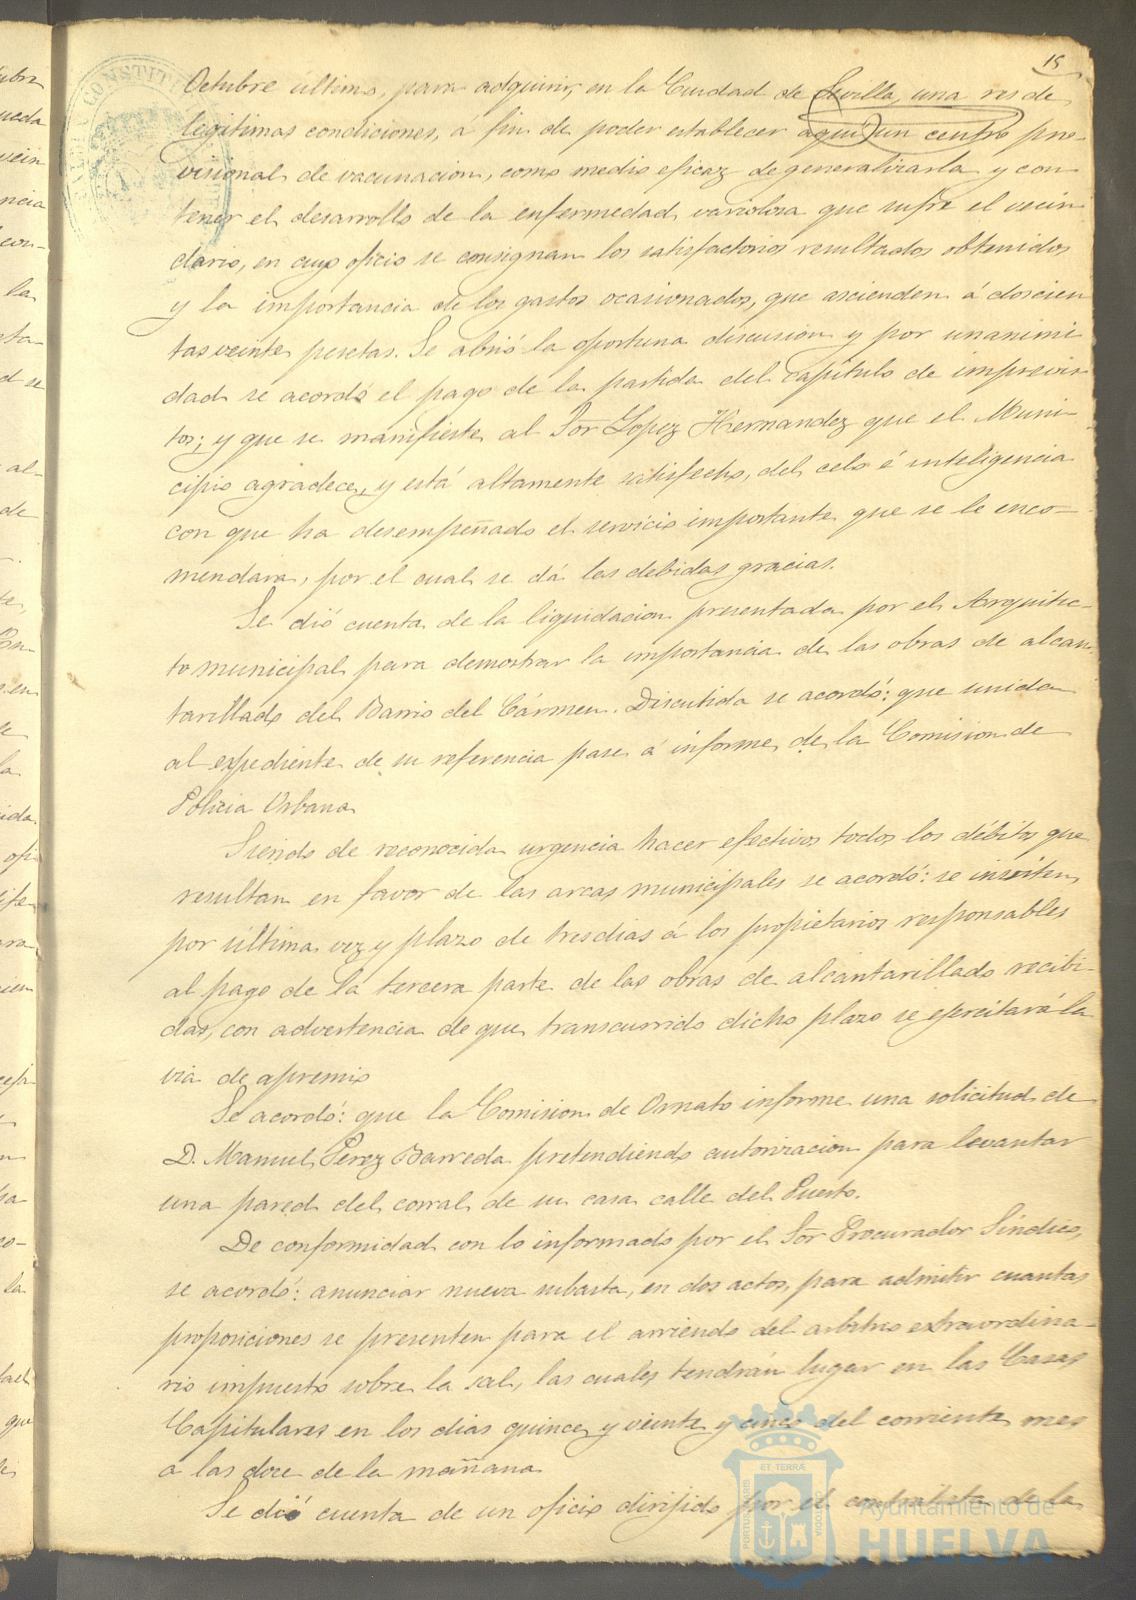 15
Octubre último, para adquirir, en la Ciudad de Sevilla, una res de
legítimas condiciones, a fin de poder establecer aquí un centro pro-
visional de vacunacion, como medio eficaz de generalizarla y con
tener el desarrollo de la enfermedad variolosa que sufre el vecin
dario, en cuyo oficio se consignan los satisfactorios resultados obtenidos,
y la importancia de los gastos ocasionados, que ascienden á doscien
tas veinte pesetas. Se abrió la oportuna discusion y por unanimi
dad se acordó el pago de la partida del capítulo de imprevis-
tos; y que se manifieste al Sor Lopez Hernandez que el Muni-
cipio agradece, y está altamente satisfecho, del celo é inteligencia
con que ha desempeñado el servicio importante que se le enco-
mendara, por el cual se dá las debidas gracias.
Se dió cuenta de la liquidacion presentada por el Arquitec-
to municipal para demostrar la importancia de las obras de alcan-
tarillado del Barrio del Cármen. Discutida se acordó: que unida
al expediente de su referencia pase á informe de la Comision de
Policia Urbana
Siendo de reconocida urgencia hacer efectivos todos los débitos que
resultan en favor de las arcas municipales se acordó: se inviten
por última vez y plazo de tres dias á los propietarios responsables
al pago de la tercera parte de las obras de alcantarillado recibi-
das, con advertencia de que transcurrido dicho plazo se ejercitará la
via de apremio
Se acordó: que la Comision de Ornato informe una solicitud de
D. Manuel Pérez Barreda pretendiendo autorizacion para levantar
una pared del corral de su casa calle del Puerto.
De conformidad con lo informado por el Sor Procurador Síndico,
se acordó: anunciar nueva subasta, en dos actos, para admitir cuantas
proposiciones se presenten para el arriendo del arbitrio extraordina-
rio impuesto sobre la sal, las cuales tendrán lugar en las Casas
Capitulares en los dias quince y veinte y cinco del corriente mes
a las doce de la mañana
Se dió cuenta de un oficio dirigido por el contratista de la
Ayuntamiento de
HUELVA